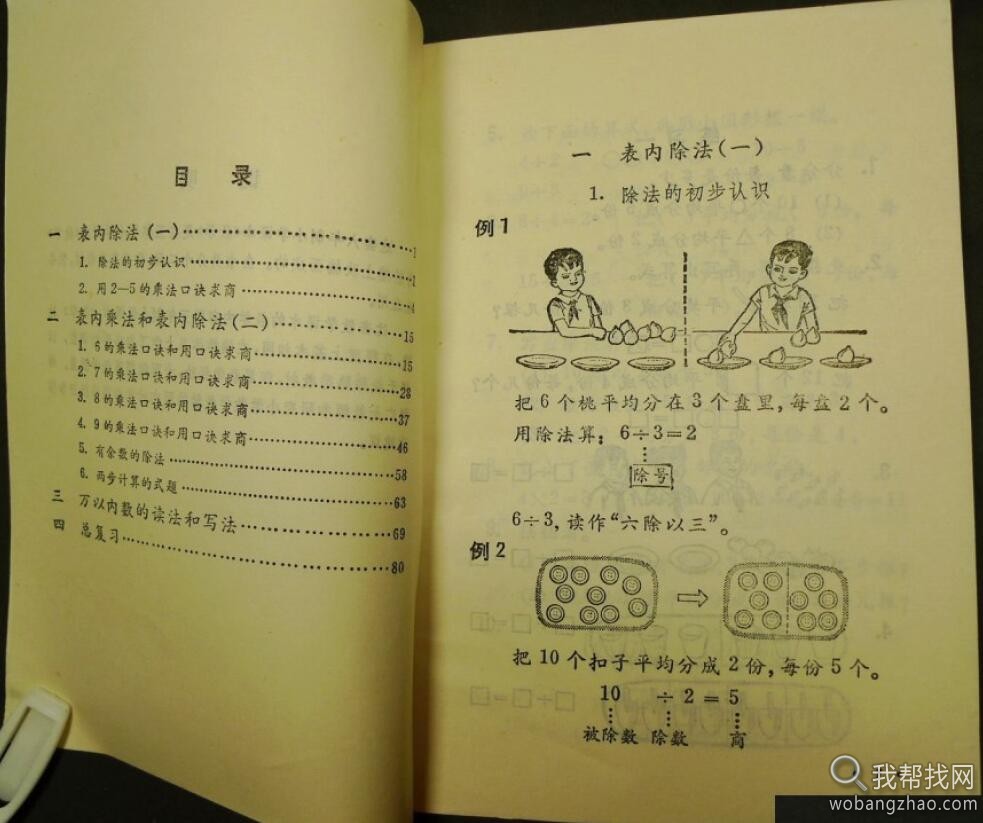 目 录
一 表内除法(一)……1
1. 除法的初步认识……1
2. 用2—5的乘法口诀求商……4
二 表内乘法和表内除法(二)……15
1. 6的乘法口诀和用口诀求商……15
2. 7的乘法口诀和用口诀求商……28
3. 8的乘法口诀和用口诀求商……37
4. 9的乘法口诀和用口诀求商……46
5. 有余数的除法……58
6. 两步计算的式题……63
三 万以内数的读法和写法……69
四 总复习……80
一 表内除法(一)
1. 除法的初步认识
例1
把6个桃平均分在3个盘里,每盘2个。
用除法算: 6÷3=2
除号
6÷3,读作“六除以三”。
例2
把10个扣子平均分成2份,每份5个。
10 ÷ 2 = 5
被除数 除数 商
我帮找网
wobangzhao.com